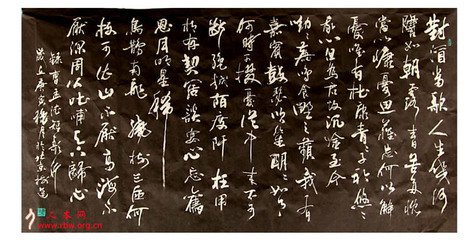 對酒當歌人生幾何
譬如朝露去日苦多慨
當以慷憂思難忘何以解
憂唯有杜康青青子衿悠悠
心但為君故沉吟至今
呦呦鹿鳴食野之蘋我有
嘉賓鼓瑟吹笙明明如月
何時可掇憂從中來不可
斷絕越陌度阡枉用
相存契闊談讌心念舊
恩月明星稀
烏鵲南飛繞樹三匝何
枝可依山不厭高海不
厭深周公吐哺天下歸心
錄曹孟德短歌行
歲在庚寅梅月於北京
www.rbw.org.cn